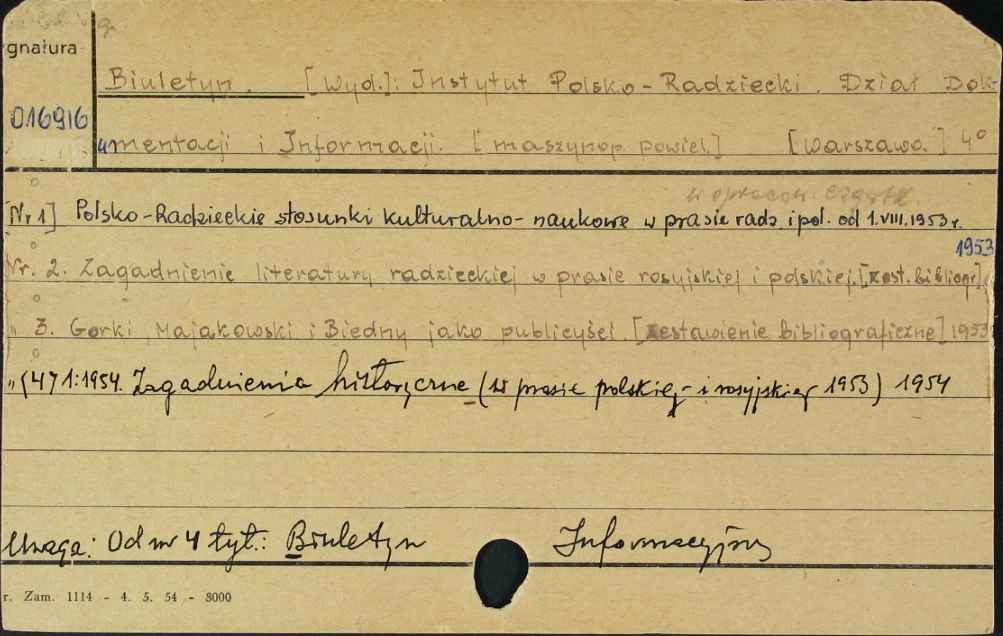 gnatura
Biuletyn. [Wyd.]: Instytut Polsko-Radziecki. Dział Dok
016916
umentacji i Informacji. [maszynop. powiel.] [Warszawa.] 4°
w opracow.
[Nr 1] Polsko-Radzieckie stosunki kulturalno-naukowe w prasie radz. i pol. od 1.VIII.1953 r.
1953
Nr. 2. Zagadnienie literatury radzieckiej w prasie rosyjskiej i polskiej. [zest. bibliogr.]
" 3. Gorki, Majakowski i Biedny jako publicyści. [zestawienie bibliograficzne] 1953
" (4) 1:1954. Zagadnienia historyczne (w prasie polskiej i rosyjskiej 1953) 1954
Uwaga: Od nr 4 tyt.: Biuletyn Informacyjny
r. Zam. 1114 - 4. 5. 54 - 8000